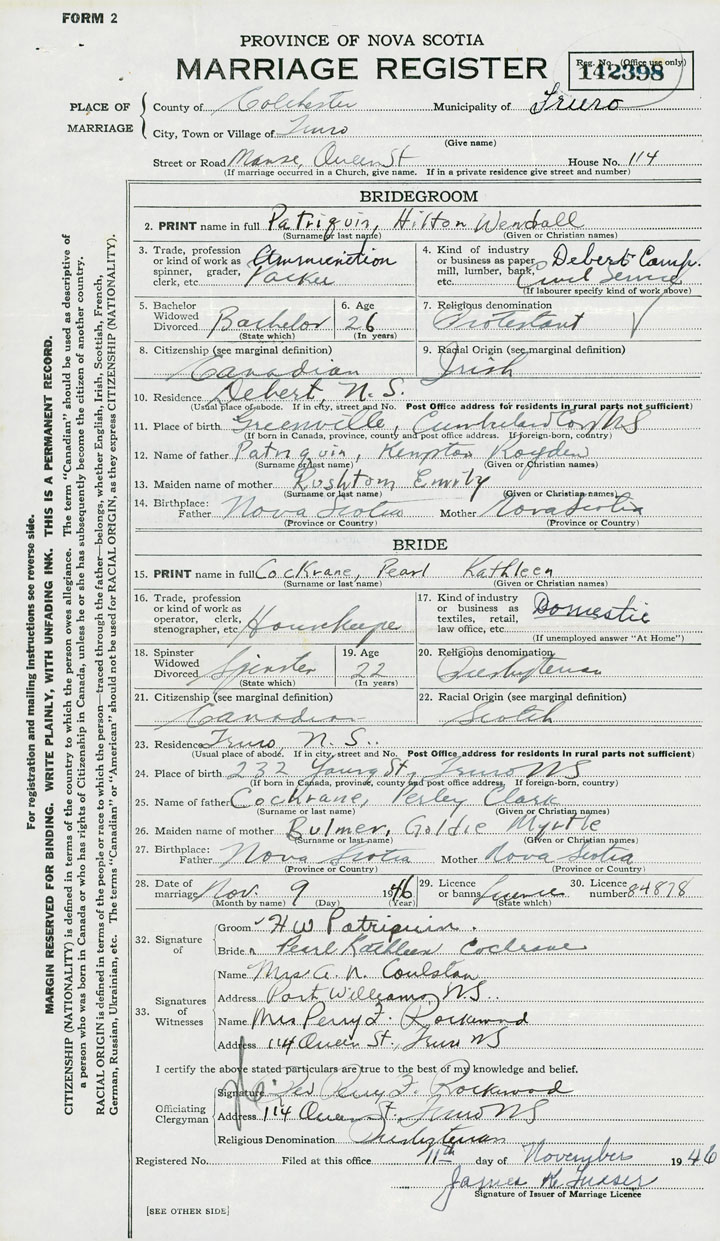 FORM 2
PROVINCE OF NOVA SCOTIA
MARRIAGE REGISTER
Reg. No. (Office use only)
142398
PLACE OF MARRIAGE
County of Colchester Municipality of Truro
City, Town or Village of Truro
(Give name)
Street or Road Manse, Queen St House No. 114
(If marriage occurred in a Church, give name. If in a private residence give street and number)
BRIDEGROOM
2. PRINT name in full Patriquin, Hilton Wendall
(Surname or last name) (Given or Christian names)
3. Trade, profession or kind of work as spinner, grader, clerk, etc. Ammunition Packer
4. Kind of industry or business as paper mill, lumber, bank, etc. Debert Camp. Civil Service
(If labourer specify kind of work above)
5. Bachelor Widowed Divorced Bachelor
(State which)
6. Age 26
(In years)
7. Religious denomination Protestant
8. Citizenship (see marginal definition) Canadian
9. Racial Origin (see marginal definition) Irish
10. Residence Debert, N. S.
(Usual place of abode. If in city, street and No. Post Office address for residents in rural parts not sufficient)
11. Place of birth Greenville, Cumberland Co, NS
(If born in Canada, province, county and post office address. If foreign-born, country)
12. Name of father Patriquin, Hempton Royden
(Surname or last name) (Given or Christian names)
13. Maiden name of mother Rushtom Emily
(Surname or last name) (Given or Christian names)
14. Birthplace: Father Nova Scotia Mother Nova Scotia
(Province or Country) (Province or Country)
BRIDE
15. PRINT name in full Cockrane, Pearl Kathleen
(Surname or last name) (Given or Christian names)
16. Trade, profession or kind of work as operator, clerk, stenographer, etc. Housekeeper
17. Kind of industry or business as textiles, retail, law office, etc. Domestic
(If unemployed answer "At Home")
18. Spinster Widowed Divorced Spinster
(State which)
19. Age 22
(In years)
20. Religious denomination Presbyterian
21. Citizenship (see marginal definition) Canadian
22. Racial Origin (see marginal definition) Scotch
23. Residence Truro, N. S.
(Usual place of abode. If in city, street and No. Post Office address for residents in rural parts not sufficient)
24. Place of birth 232 Young St, Truro NS
(If born in Canada, province, county and post office address. If foreign-born, country)
25. Name of father Cochrane, Perley Clark
(Surname or last name) (Given or Christian names)
26. Maiden name of mother Bulmer, Goldie Myrtle
(Surname or last name) (Given or Christian names)
27. Birthplace: Father Nova Scotia Mother Nova Scotia
(Province or Country) (Province or Country)
28. Date of marriage Nov. 9 1946
(Month by name) (Day) (Year)
29. Licence or banns licence
(State which)
30. Licence number 84878
32. Signature of
Groom H W Patriquin.
Bride Pearl Kathleen Cochrane
33. Signatures of Witnesses
Name Mrs A. N. Coulstan
Address Port Williams, NS..
Name Mrs Perry F. Rockwood
Address 114 Queen St., Truro NS
I certify the above stated particulars are true to the best of my knowledge and belief.
Officiating Clergyman
Signature Perry F. Rockwood
Address 114 Queen St. Truro NS
Religious Denomination Presbyterian
Registered No. Filed at this office 11th day of November 1946
James K Fraser
Signature of Issuer of Marriage Licence
[SEE OTHER SIDE]
For registration and mailing instructions see reverse side.
MARGIN RESERVED FOR BINDING. WRITE PLAINLY, WITH UNFADING INK. THIS IS A PERMANENT RECORD.
CITIZENSHIP (NATIONALITY) is defined in terms of the country to which the person owes allegiance. The term "Canadian" should be used as descriptive of
a person who was born in Canada or who has rights of Citizenship in Canada, unless he or she has subsequently become the citizen of another country.
RACIAL ORIGIN is defined in terms of the people or race to which the person—traced through the father—belongs, whether English, Irish, Scottish, French,
German, Russian, Ukrainian, etc. The terms "Canadian" or "American" should not be used for RACIAL ORIGIN, as they express CITIZENSHIP (NATIONALITY).